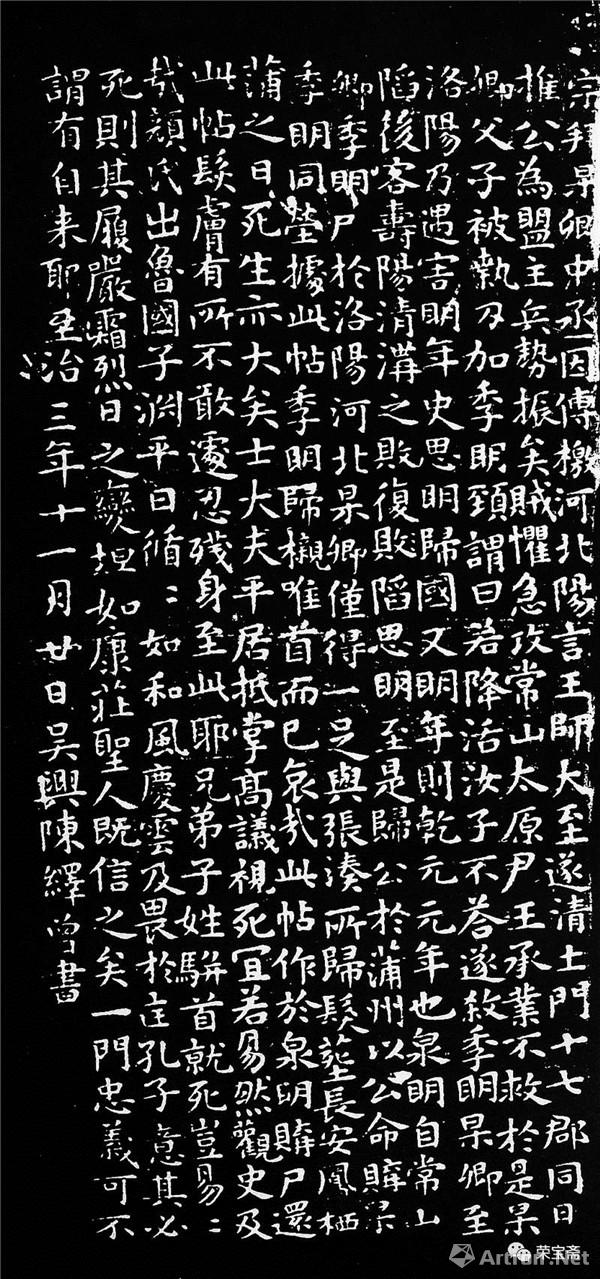 宗拜杲卿中丞因傳檄河北陽言王師大至遂清土門十七郡同日
推公為盟主兵勢振矣賊懼急攻常山太原尹王承業不救於是杲
卿父子被執刃加季明頸謂曰若降活汝子不荅遂殺季明杲卿至
洛陽乃遇害明年史思明歸國又明年則乾元元年也泉明自常山
陷後客壽陽清溝之敗復敗陷思明至是歸公於蒲州以公命購杲
卿季明尸於洛陽河北杲卿僅得一足與張湊所歸髮塟長安鳳栖
季明同塋據此帖季明歸櫬唯首而已哀哉此帖作於泉明購尸還
蒲之日死生亦大矣士大夫平居抵掌高議視死宜若易然觀史及
此帖髮膚有所不敢遽忍殘身至此耶兄弟子姓駢首就死豈易〻
哉顏氏出魯國子淵平日循〻如和風慶雲及畏於匡孔子意其必
死則其履嚴霜烈日之變坦如康莊聖人既信之矣一門忠義可不
謂有自来耶至治三年十一月廿日吳興陳繹曾書
荣宝斋
Artron.Net